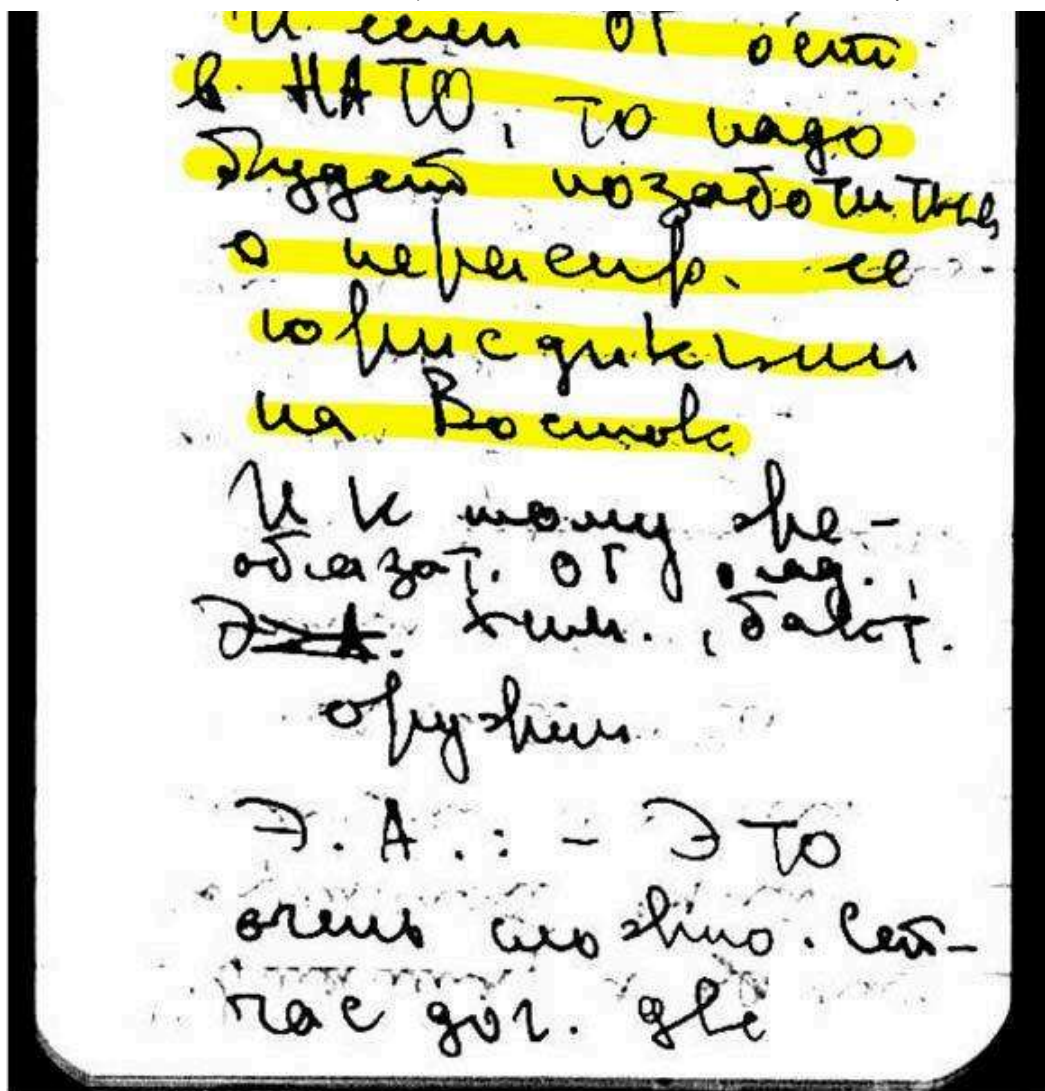 И если ОГ ост.
в НАТО, то надо
будет позаботиться
о нераспр. ее
юрисдикции
на Восток
И к тому же -
обязат. ОГ яд.,
Э.А. хим., бакт.
оружии
Э.А.: - Это
очень сложно. Сей-
час дог. две